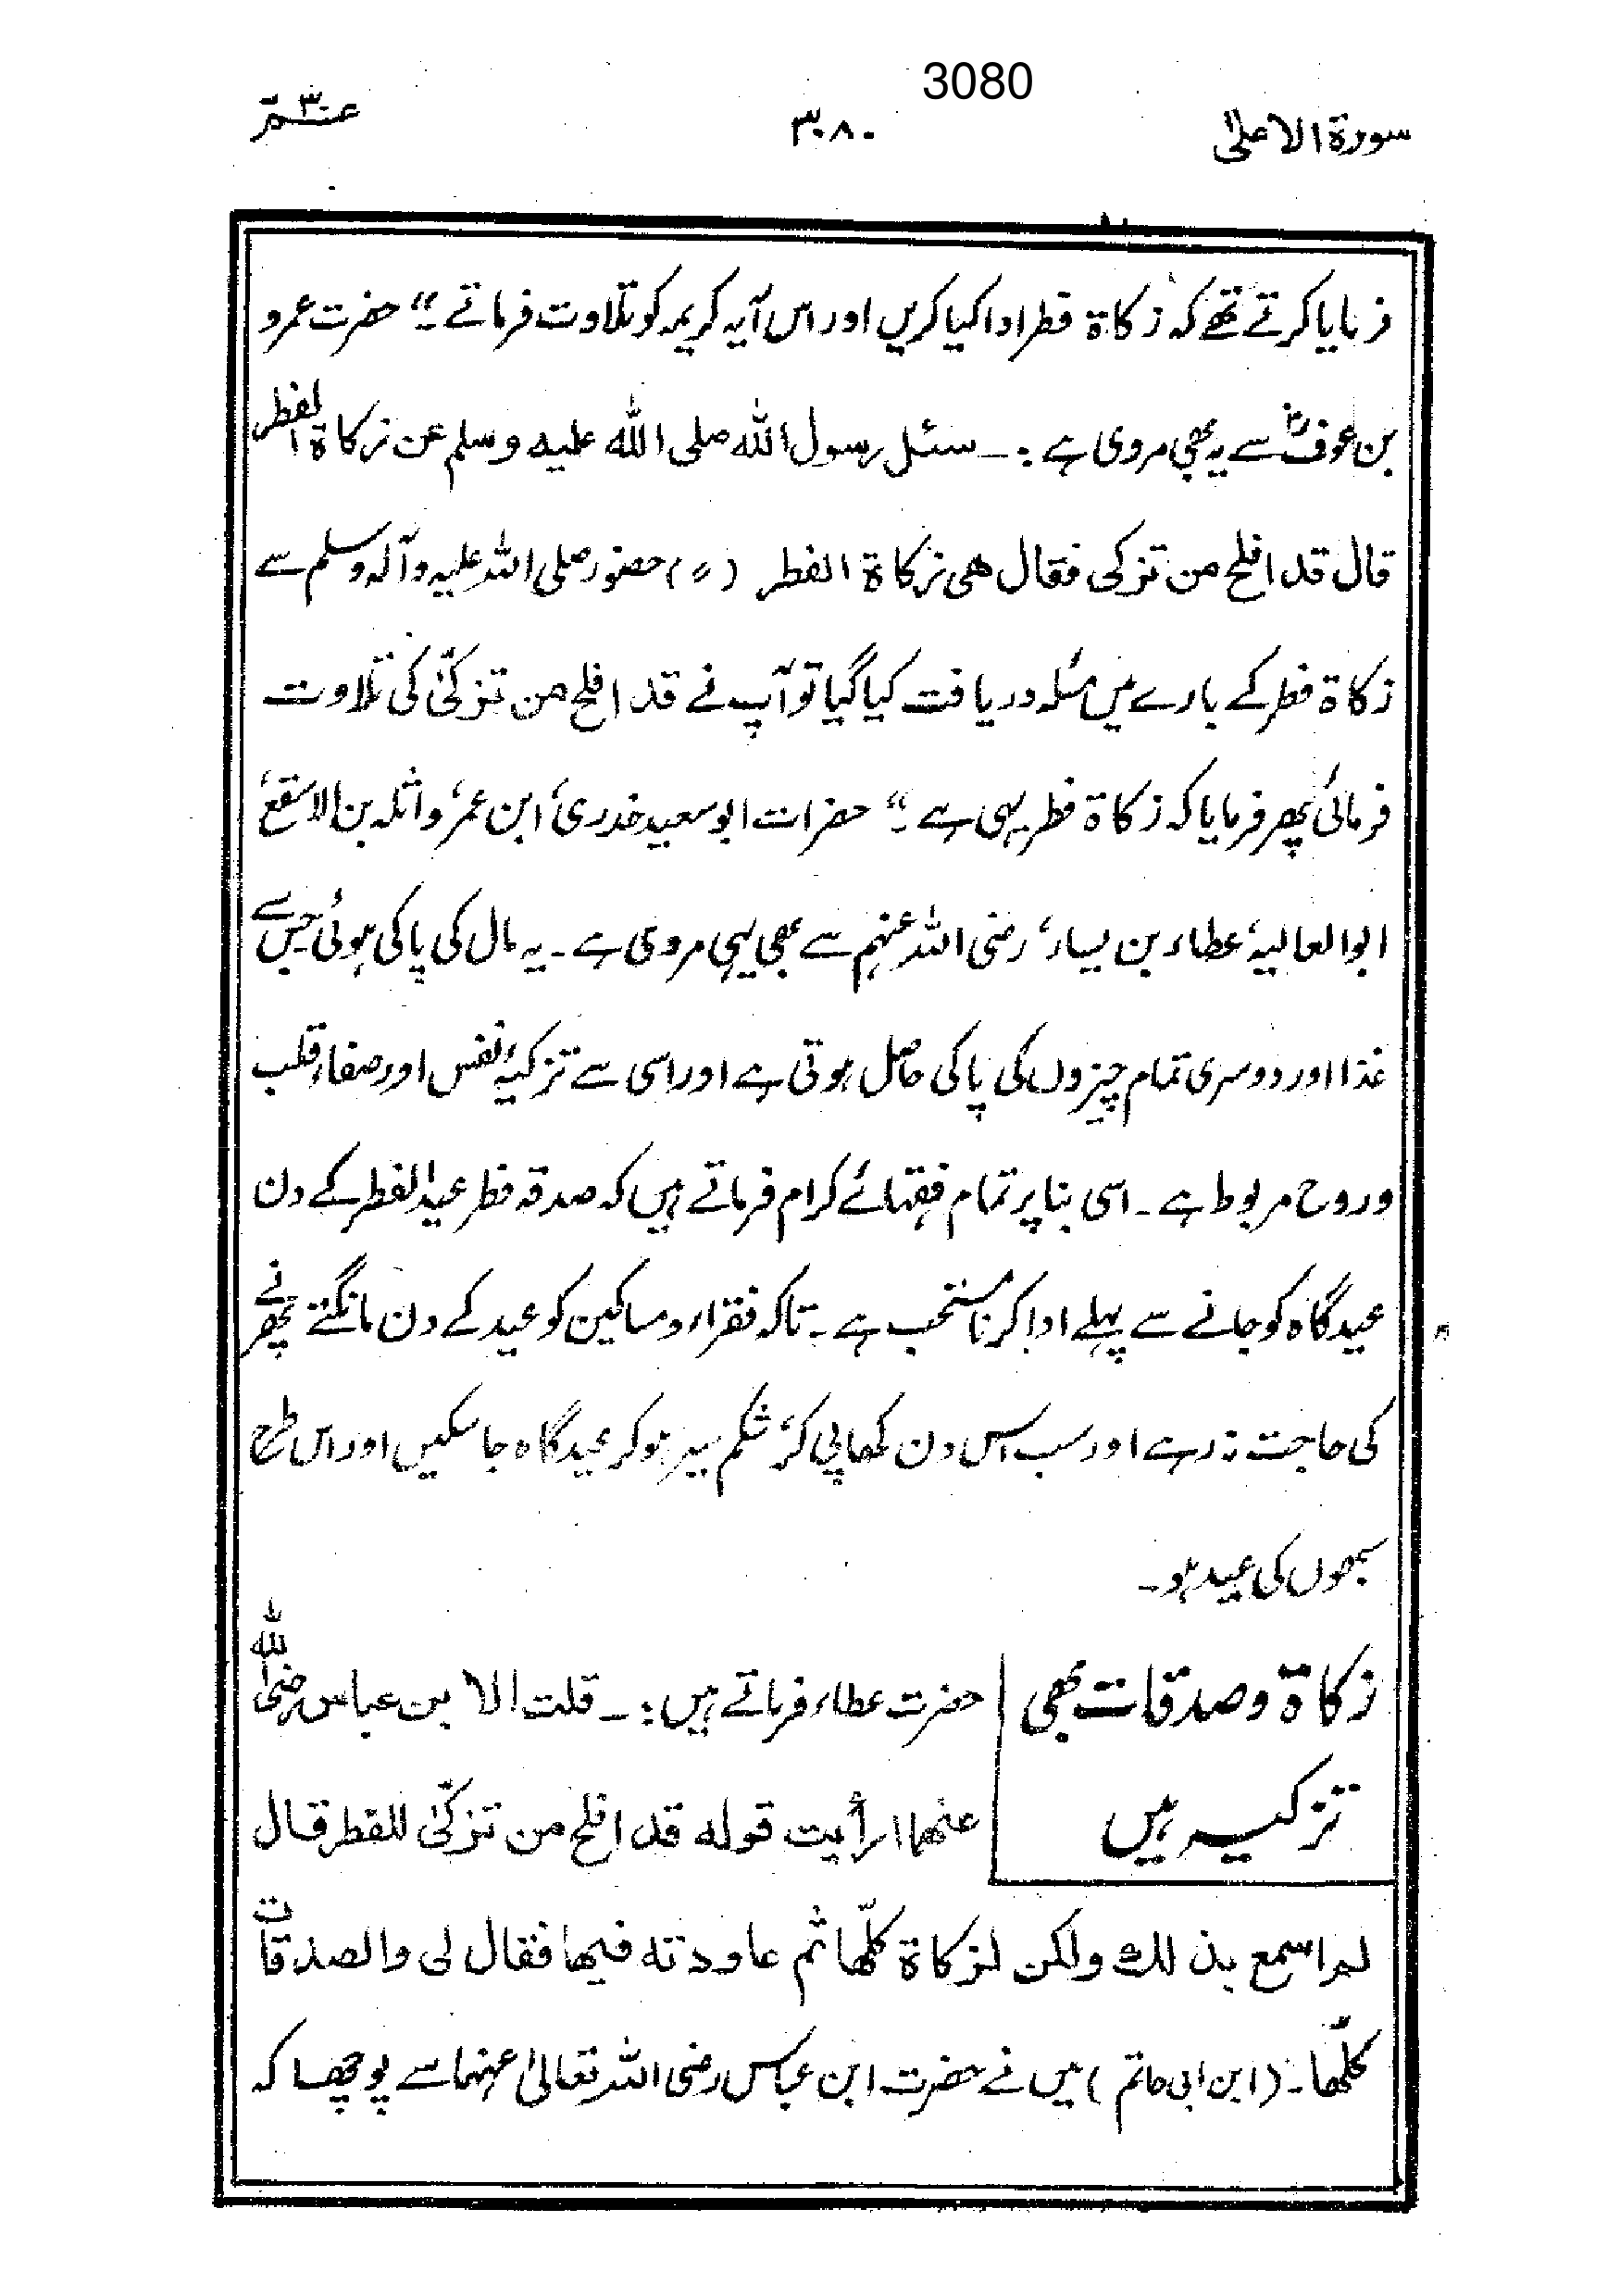 3080
سورۃ الاعلیٰ ۳۰۸۰ عـــمّ ۳۰
فرمایا کرتے تھے کہ زکاۃ فطر ادا کیا کریں اور اس آیہ کریمہ کو تلاوت فرماتے۔“ حضرت عمرو
بن عوفؓ سے یہ بھی مروی ہے :۔ سئل رسول اللہ صلی اللہ علیہ وسلم عن زکاۃ الفطر
قال قد افلح من تزکی فقال ھی زکاۃ الفطر (〃) حضور صلی اللہ علیہ وآلہ وسلم سے
زکاۃ فطر کے بارے میں مسئلہ دریافت کیا گیا تو آپ نے قد افلح من تزکّیٰ کی تلاوت
فرمائی پھر فرمایا کہ زکاۃ فطر یہی ہے۔“ حضرات ابوسعید خدری، ابن عمر، واثلہ بن الاسقع،
ابوالعالیہ، عطاء بن یسار، رضی اللہ عنہم سے بھی یہی مروی ہے۔ یہ مال کی پاکی ہوئی جس سے
غذا اور دوسری تمام چیزوں کی پاکی حاصل ہوتی ہے اور اسی سے تزکیۂ نفس اور صفاء قلب
وروح مربوط ہے۔ اسی بنا پر تمام فقہائے کرام فرماتے ہیں کہ صدقہ فطر عید الفطر کے دن
عیدگاہ کو جانے سے پہلے ادا کرنا مستحب ہے۔ تاکہ فقراء و مساکین کو عید کے دن مانگتے پھرنے
کی حاجت نہ رہے اور سب اس دن کھا پی کر، شکم سیر ہوکر عیدگاہ جا سکیں اور اس طرح
سبھوں کی عید ہو۔
زکاۃ وصدقات بھی
تزکیہ ہیں
حضرت عطاء فرماتے ہیں :۔ قلت الا بن عباس رضی اللہ
عنھما ارأیت قولہ قد افلح من تزکّیٰ للفطر قال
لم اسمع بذلك ولکن لزکاۃ کلّھا ثم عاودتہ فیھا فقال لی والصدقات
کلّھا۔ (ابن ابی حاتم) میں نے حضرت ابن عباس رضی اللہ تعالیٰ عنہما سے پوچھا کہ